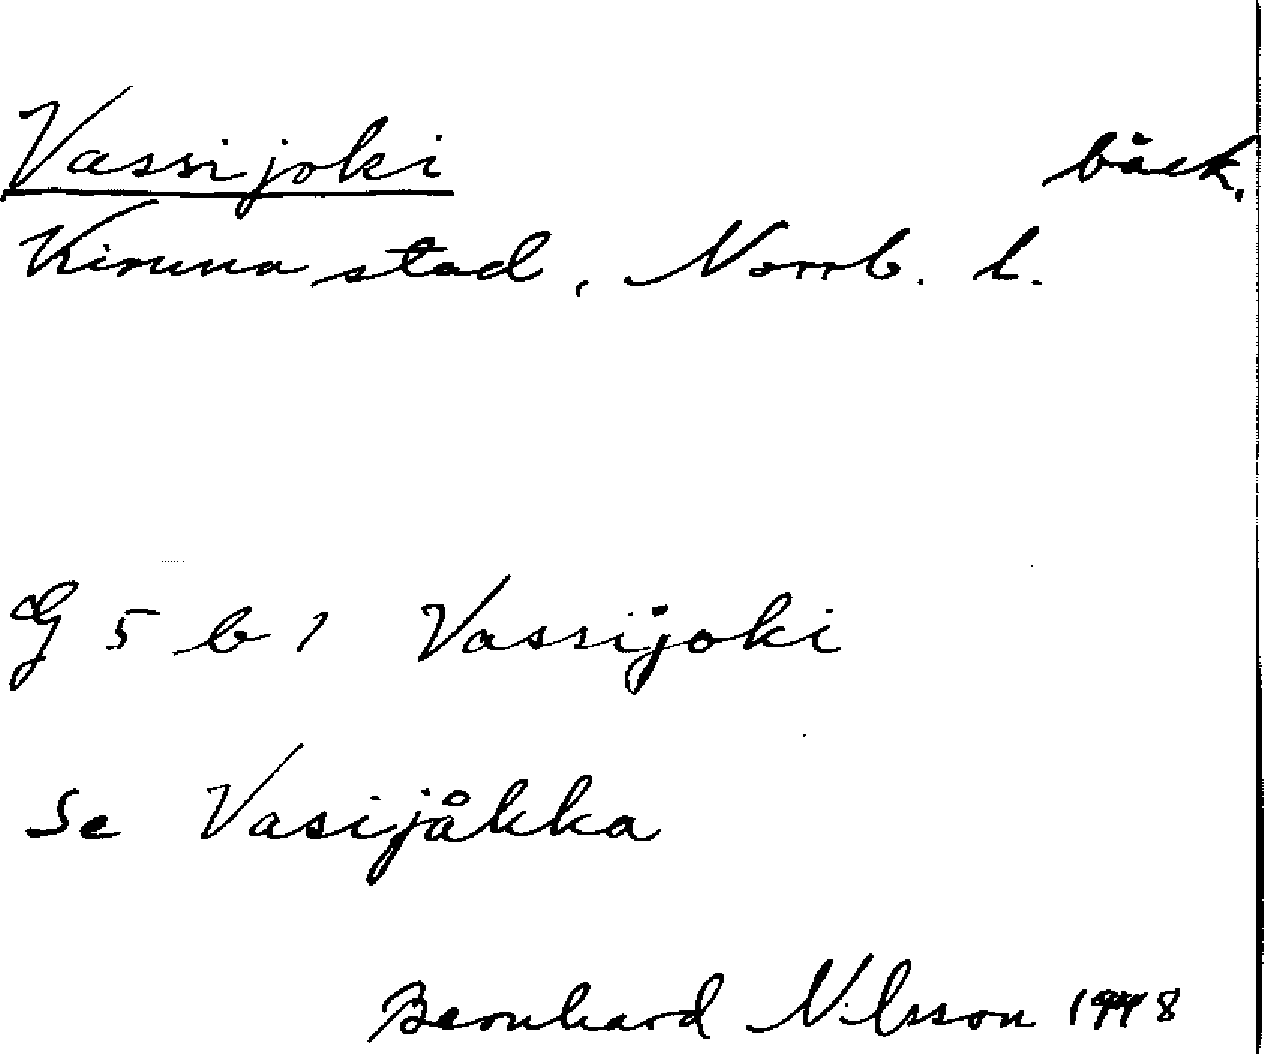 Vassijoki bäck.
Kiruna stad, Norrb. l.
G 5 b 1 Vassijoki
Se Vasijåkka
Bernhard Nilsson 1948